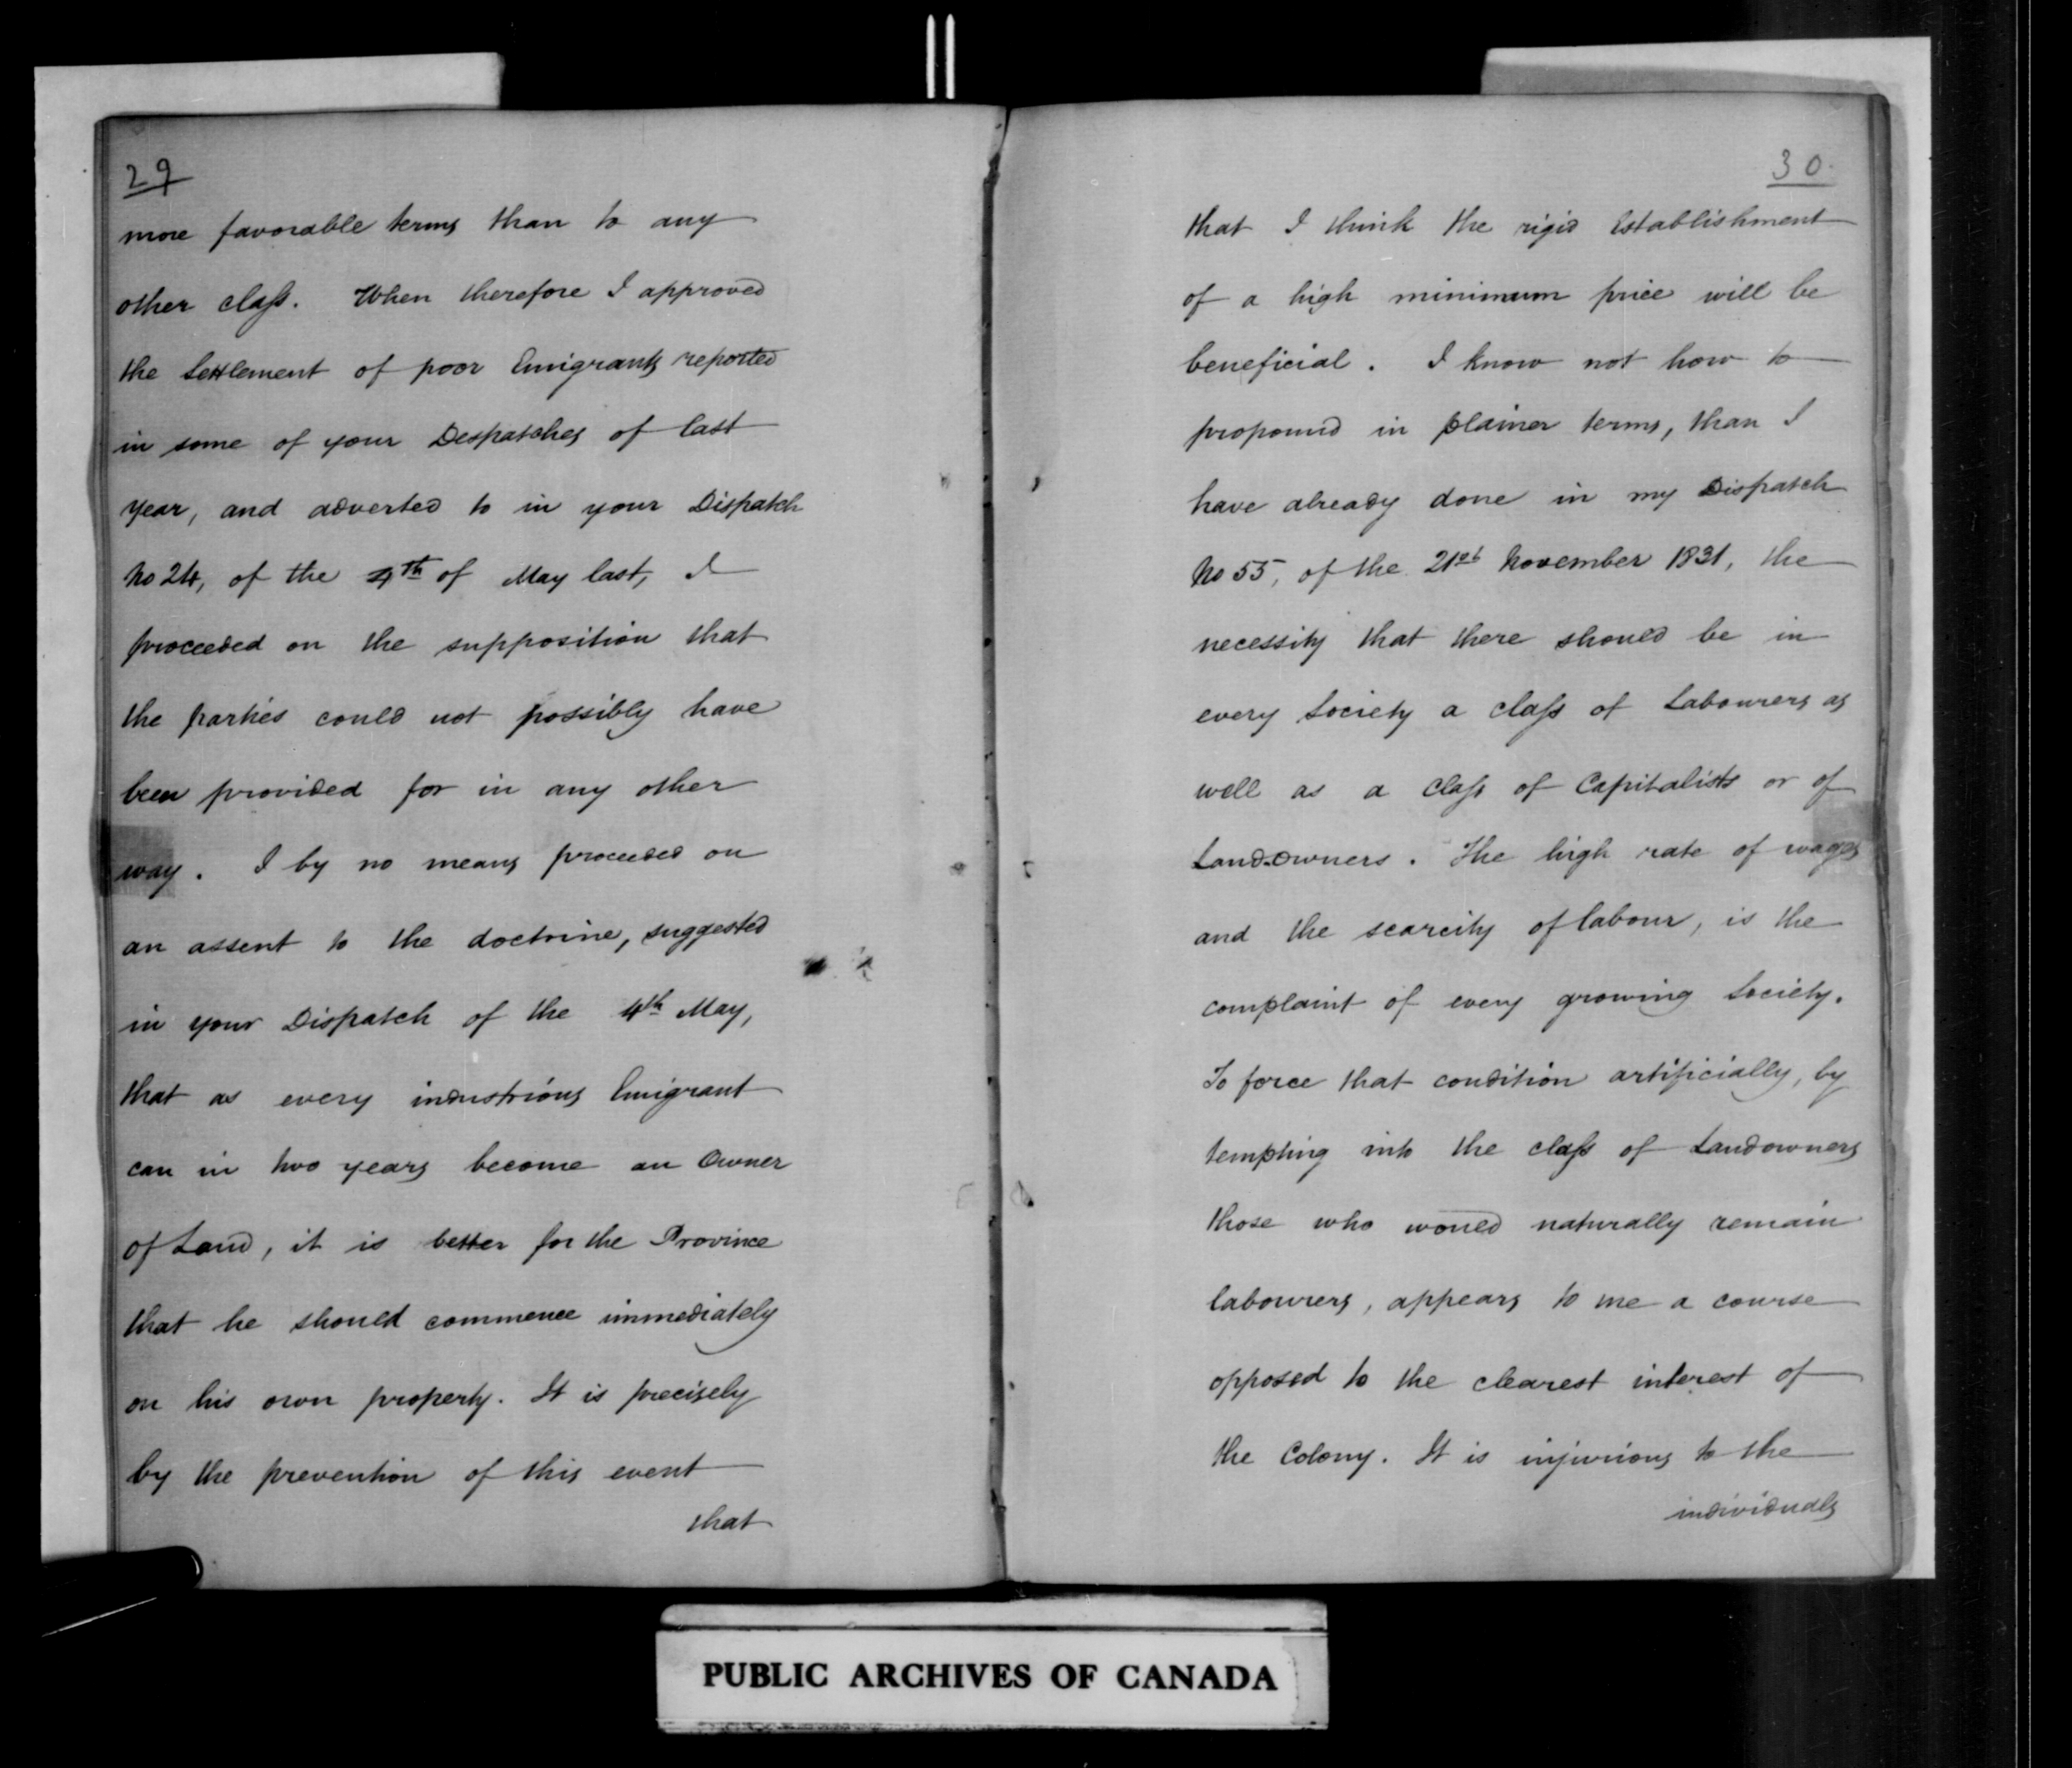 29
more favorable terms than to any
other class. When therefore I approved
the Settlement of poor Emigrants reported
in some of your Despatches of last
year, and adverted to in your Dispatch
No 24, of the 4th of May last, I
proceeded on the supposition that
the parties could not possibly have
been provided for in any other
way. I by no means proceeded on
an assent to the doctrine, suggested
in your Dispatch of the 4th May,
that as every industrious Emigrant
can in two years become an Owner
of Land, it is better for the Province
that he should commence immediately
on his own property. It is precisely
by the prevention of this event
that
30.
that I think the rigid Establishment
of a high minimum price will be
beneficial. I know not how to
propound in plainer terms, than I
have already done in my Dispatch
No 55, of the 21st November 1831, the
necessity that there should be in
every Society a class of Labourers as
well as a Class of Capitalists or of
Land-owners. The high rate of wages
and the scarcity of labour, is the
complaint of every growing Society.
To force that condition artificially, by
tempting into the class of Landowners
those who would naturally remain
labourers, appears to me a course
opposed to the clearest interest of
the Colony. It is injurious to the
individuals
PUBLIC ARCHIVES OF CANADA